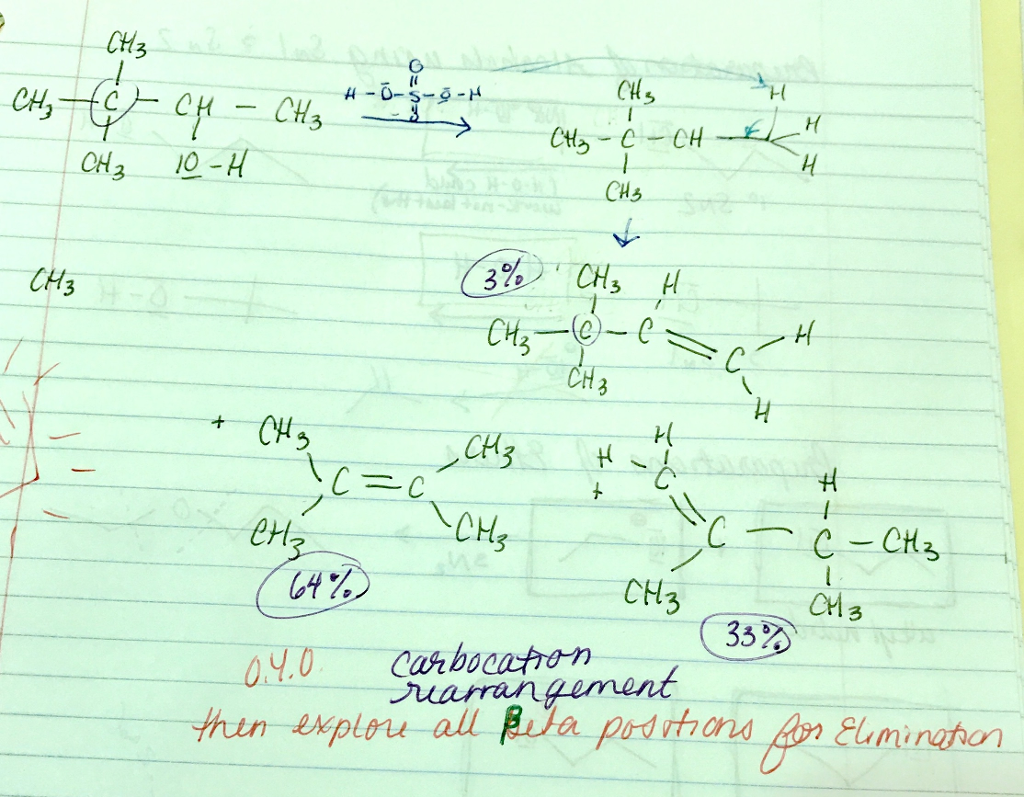 CH3
CH3 — C — CH — CH3
CH3 IO - H
O
H - O - S - O - H
O
CH3 H
CH3 - C - CH — H
CH3 H
CH3
3% CH3 H
CH3 — C — C = C — H
CH3 H
+ CH3 CH3
C = C
CH3 CH3
64%
H
H - C
+
C — C — CH3
H
CH3 CH3
33%
0.4.0 carbocation
rearrangement
then explore all Beta positions for Elimination